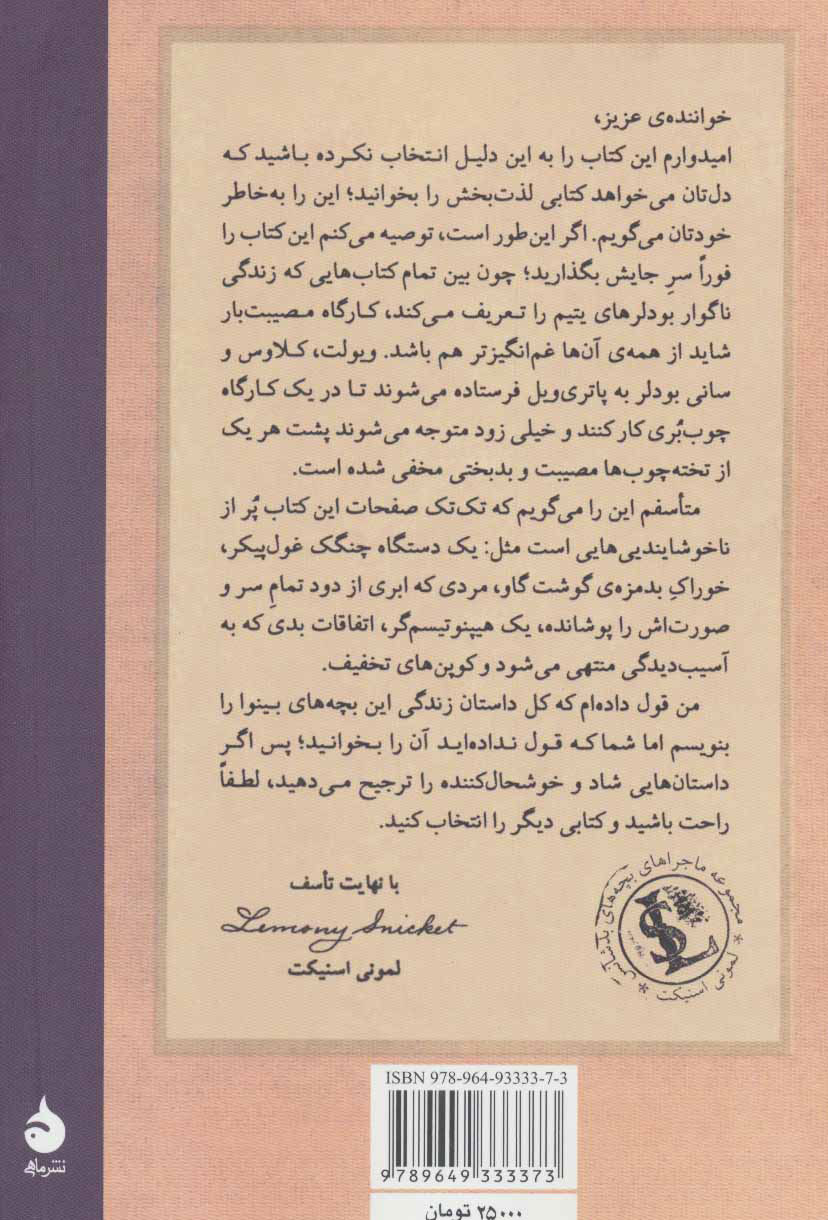 خواننده‌ی عزیز،
امیدوارم این کتاب را به این دلیل انتخاب نکرده باشید که
دل‌تان می‌خواهد کتابی لذت‌بخش را بخوانید؛ این را به‌خاطر
خودتان می‌گویم. اگر این‌طور است، توصیه می‌کنم این کتاب را
فوراً سرِ جایش بگذارید؛ چون بین تمام کتاب‌هایی که زندگی
ناگوار بودلرهای یتیم را تعریف می‌کند، کارگاه مصیبت‌بار
شاید از همه‌ی آن‌ها غم‌انگیزتر هم باشد. ویولت، کلاوس و
سانی بودلر به پاتری‌ویل فرستاده می‌شوند تا در یک کارگاه
چوب‌بُری کار کنند و خیلی زود متوجه می‌شوند پشت هر یک
از تخته‌چوب‌ها مصیبت و بدبختی مخفی شده است.
متأسفم این را می‌گویم که تک‌تک صفحات این کتاب پُر از
ناخوشایندیی‌هایی است مثل: یک دستگاه چنگک غول‌پیکر،
خوراکِ بدمزه‌ی گوشت گاو، مردی که ابری از دود تمامِ سر و
صورت‌اش را پوشانده، یک هیپنوتیسم‌گر، اتفاقات بدی که به
آسیب‌دیدگی منتهی می‌شود و کوپن‌های تخفیف.
من قول داده‌ام که کل داستان زندگی این بچه‌های بینوا را
بنویسم اما شما که قول نداده‌اید آن را بخوانید؛ پس اگر
داستان‌هایی شاد و خوشحال‌کننده را ترجیح می‌دهید، لطفاً
راحت باشید و کتابی دیگر را انتخاب کنید.
با نهایت تأسف
Lemony Snicket
لمونی اسنیکت
مجموعه ماجراهای بچه‌های بدشانس
* لمونی اسنیکت *
LS
ISBN 978-964-93333-7-3
9 789649 333373
۲۵۰۰۰ تومان
نشرماهی